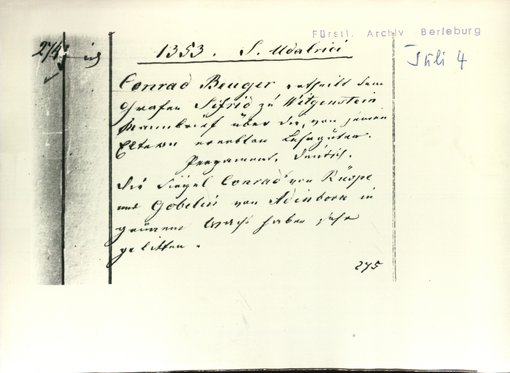 Fürstl. Archiv Berleburg
Juli 4
1353. S. Udalrici
Conrad Beuger ertheilt dem
Grafen Sifrid zu Witgenstein
Mannbrief über die, von seinen
Eltern ererbten Lehngüter.
Pergament, deutsch.
Die Siegel Conrads von Rüspe
und Gobelin von Adinborn in
grünem Wachs haben sehr
gelitten.
275